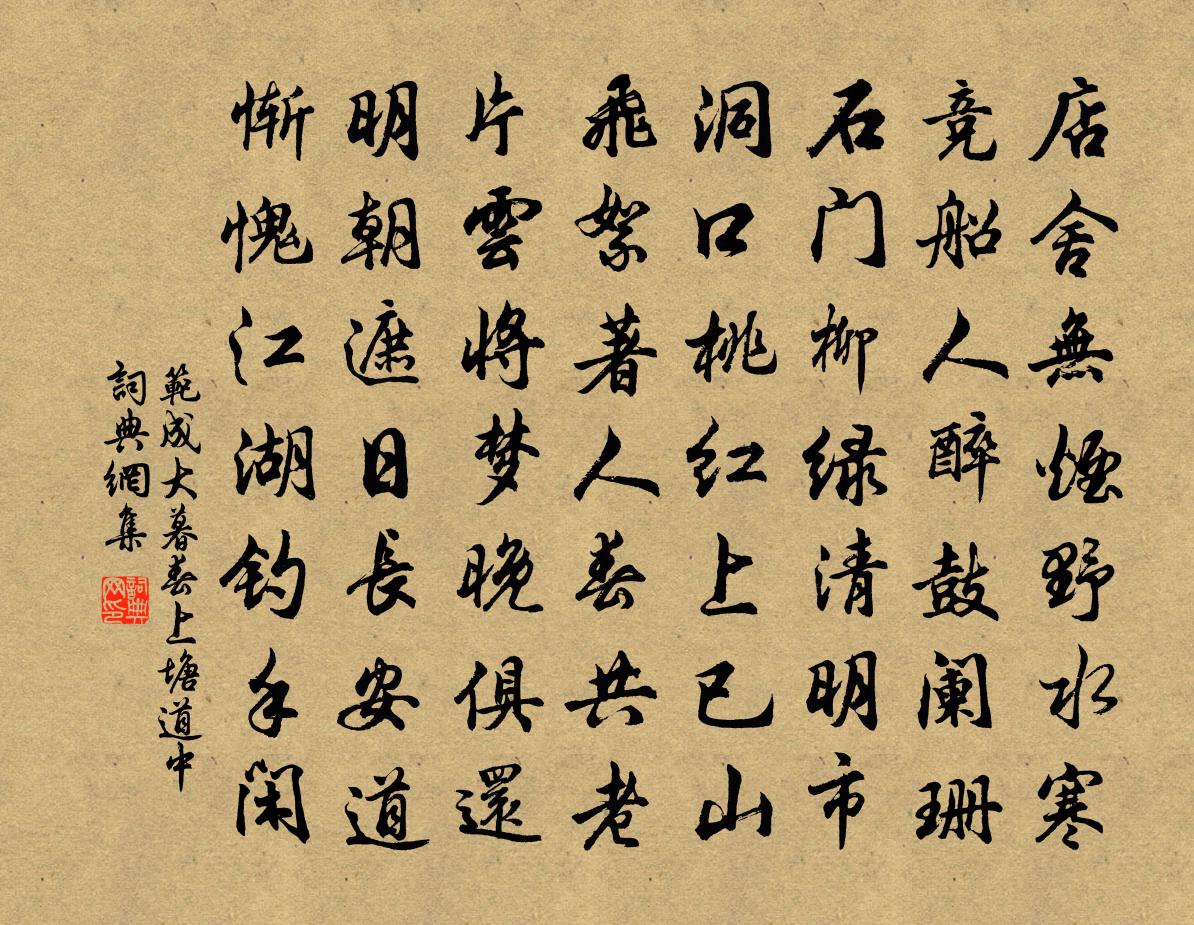 店舍無煙野水寒
竞船人醉鼓阑珊
石门柳绿清明市
洞口桃红上巳山
飛絮著人春共老
片雲將梦晚俱還
明朝遮日長安道
惭愧江湖钓手闲
範成大暮春上塘道中
詞典網集
詞典网印